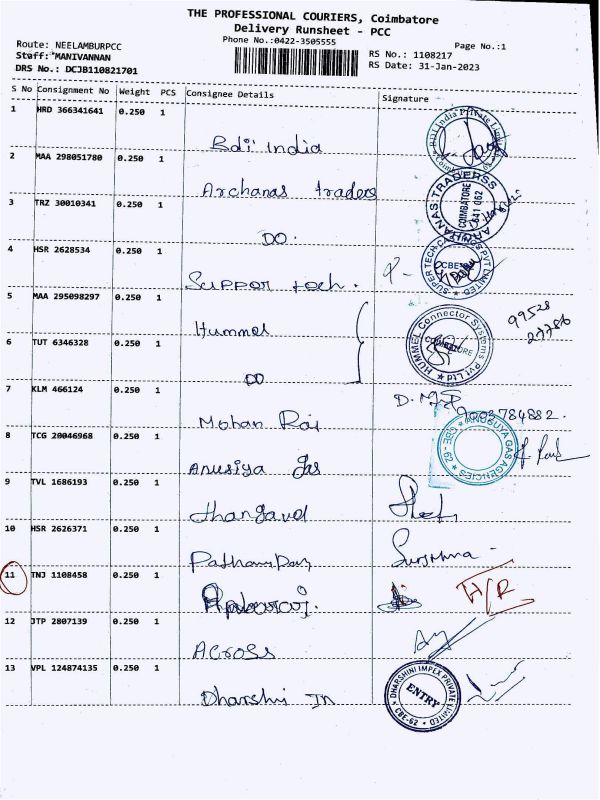 THE PROFESSIONAL COURIERS, Coimbatore
Delivery Runsheet - PCC
Phone No.:0422-3505555
Page No.:1
Route: NEELAMBURPCC
Staff: MANIVANNAN
DRS No.: DCJB110821701
RS No.: 1108217
RS Date: 31-Jan-2023
S No Consignment No Weight PCS Consignee Details Signature
1 HRD 366341641 0.250 1 Bdi India
2 MAA 298051780 0.250 1 Archanas traders
ARCHANAS TRADERSS COIMBATORE 641 062
3 TRZ 30010341 0.250 1 DO.
4 HSR 2628534 0.250 1 Supper tech.
5 MAA 295098297 0.250 1 Hummel
HUMMEL Connector Systems Pvt Ltd COIMBATORE
99528
27786
6 TUT 6346328 0.250 1 DO
7 KLM 466124 0.250 1 Mohan Raj
9003784882.
8 TCG 20046968 0.250 1 Anusiya Gas
ANUSUYA GAS AGENCIES CBE-62
9 TVL 1686193 0.250 1 thangavel
10 HSR 2626371 0.250 1
11 TNJ 1108458 0.250 1
H/R
12 JTP 2807139 0.250 1 Across
13 VPL 124874135 0.250 1 Dharshi In
DHARSHINI IMPEX PRIVATE LIMITED ENTRY CBE-62